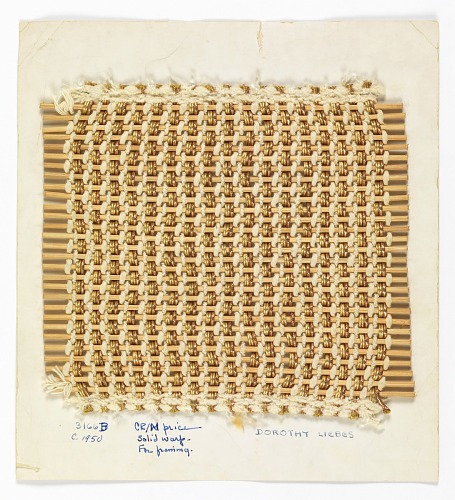 3166B
C. 1950
CE/M price
Solid warp.
For framing.
DOROTHY LIEBES